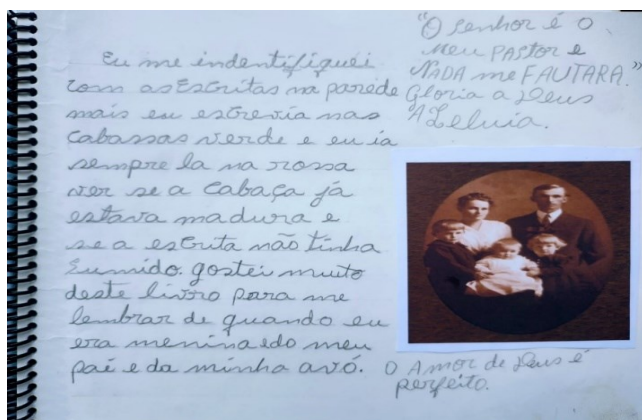 Eu me indentifiquei
com as Escritas na parede
mais eu escrevia nas
cabassas verde e eu ia
sempre la na rossa
ver se a cabaça já
estava madura e
se a escrita não tinha
sumido. gostei muito
deste livro para me
lembrar de quando eu
era menina e do meu
pai e da minha avó.
"O Senhor é o
meu PASTOR e
NADA me FAUTARA."
Gloria a Deus
Aleluia.
O Amor de Deus é
perfeito.